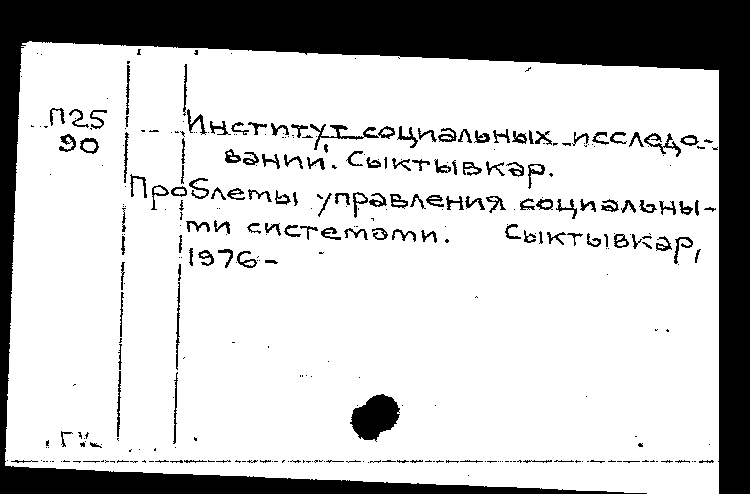 П25
90
Институт социальных исследо-
ваний. Сыктывкар.
Проблемы управления социальны-
ми системами. Сыктывкар,
1976-